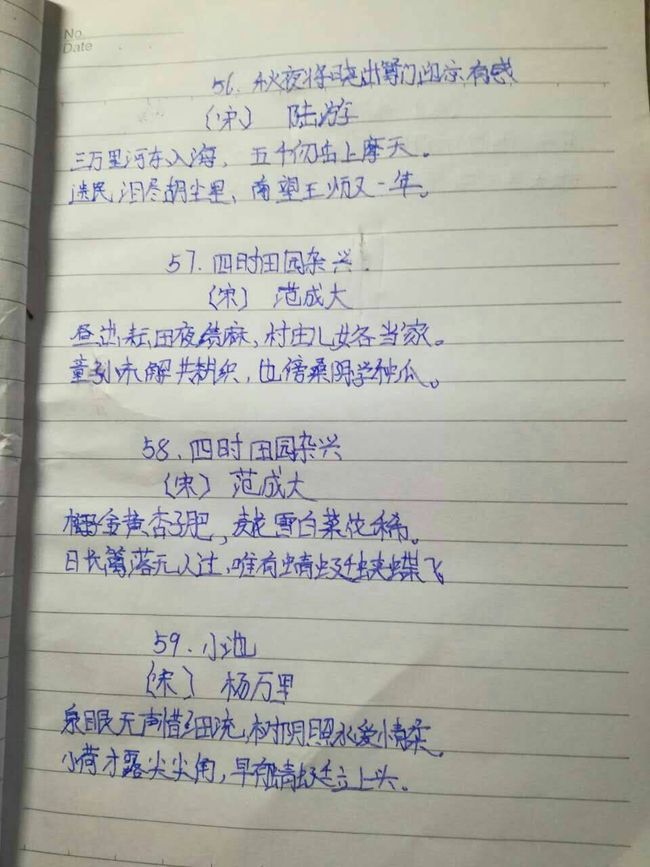 No.
Date
56. 秋夜将晓出篱门迎凉有感
〔宋〕 陆游
三万里河东入海，五千仞岳上摩天。
遗民泪尽胡尘里，南望王师又一年。
57. 四时田园杂兴
〔宋〕 范成大
昼出耘田夜绩麻，村庄儿女各当家。
童孙未解共耕织，也傍桑阴学种瓜。
58. 四时田园杂兴
〔宋〕 范成大
梅子金黄杏子肥，麦花雪白菜花稀。
日长篱落无人过，唯有蜻蜓蛱蝶飞
59. 小池
〔宋〕 杨万里
泉眼无声惜细流，树阴照水爱晴柔。
小荷才露尖尖角，早有蜻蜓立上头。